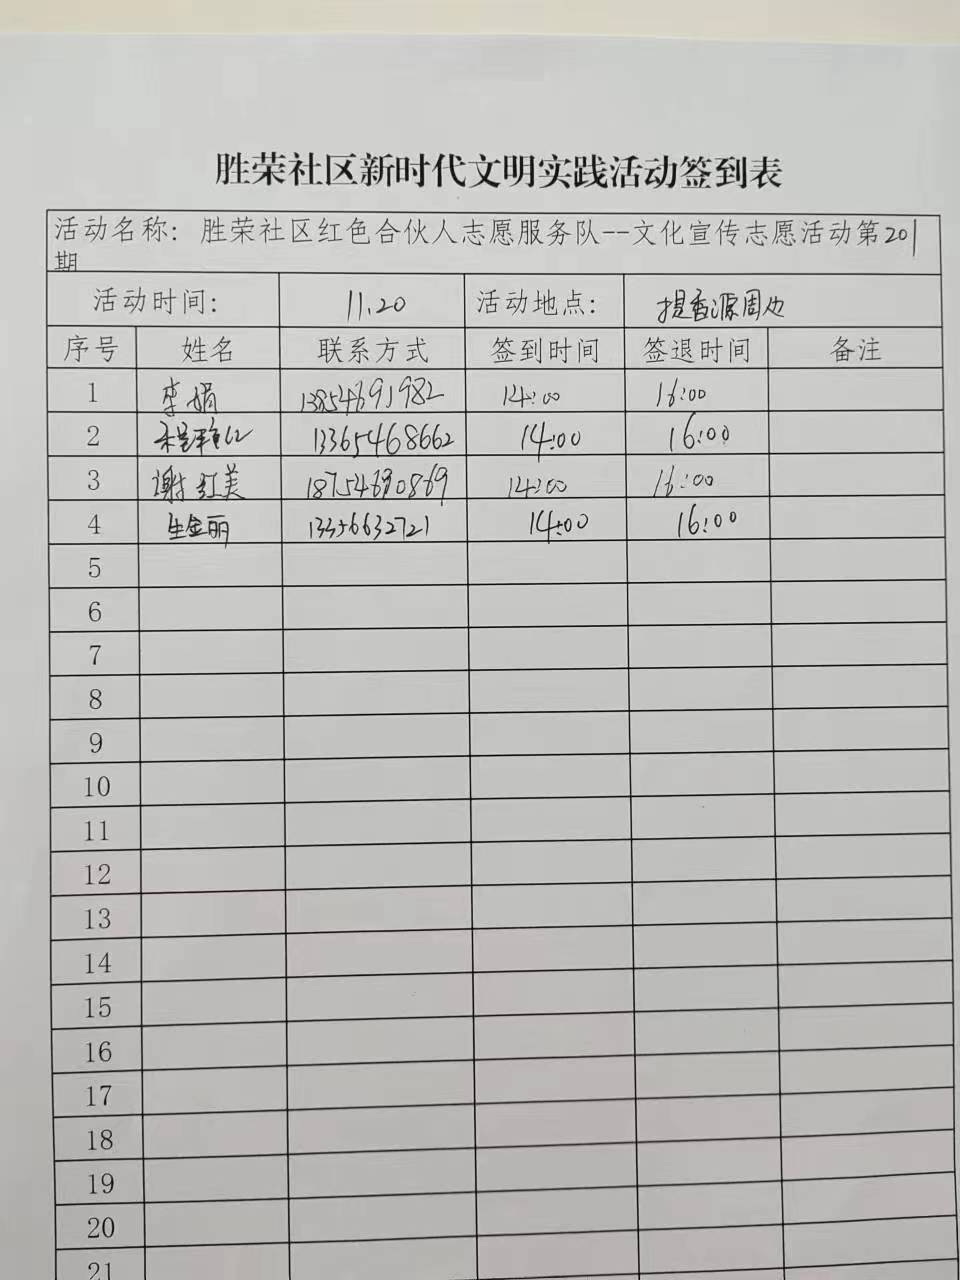 胜荣社区新时代文明实践活动签到表
活动名称：胜荣社区红色合伙人志愿服务队--文化宣传志愿活动第201
期
活动时间： 11.20 活动地点： 提香源周边
序号 姓名 联系方式 签到时间 签退时间 备注
1 李娟 13854691982 14:00 16:00
2 13365468662 14:00 16:00
3 谢红美 14:00 16:00
4 生金丽 13356632721 14:00 16:00
5
6
7
8
9
10
11
12
13
14
15
16
17
18
19
20
21